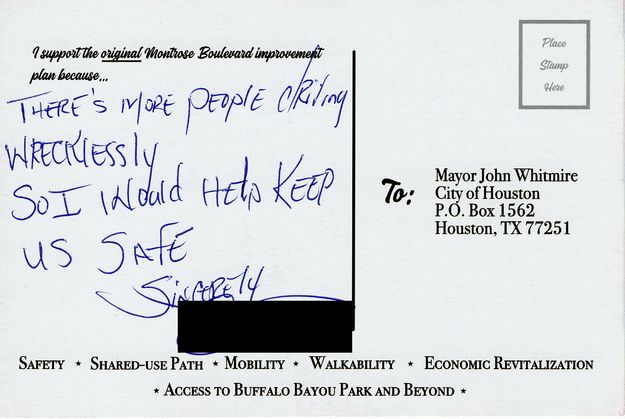 I support the original Montrose Boulevard improvement
plan because...
THERE'S MORE PEOPLE driving
WRECKLESSly
SO I Would HElp KEEP
US SAFE
SINCERELY
Place
Stamp
Here
To:
Mayor John Whitmire
City of Houston
P.O. Box 1562
Houston, TX 77251
SAFETY ★ SHARED-USE PATH ★ MOBILITY ★ WALKABILITY ★ ECONOMIC REVITALIZATION
★ ACCESS TO BUFFALO BAYOU PARK AND BEYOND ★